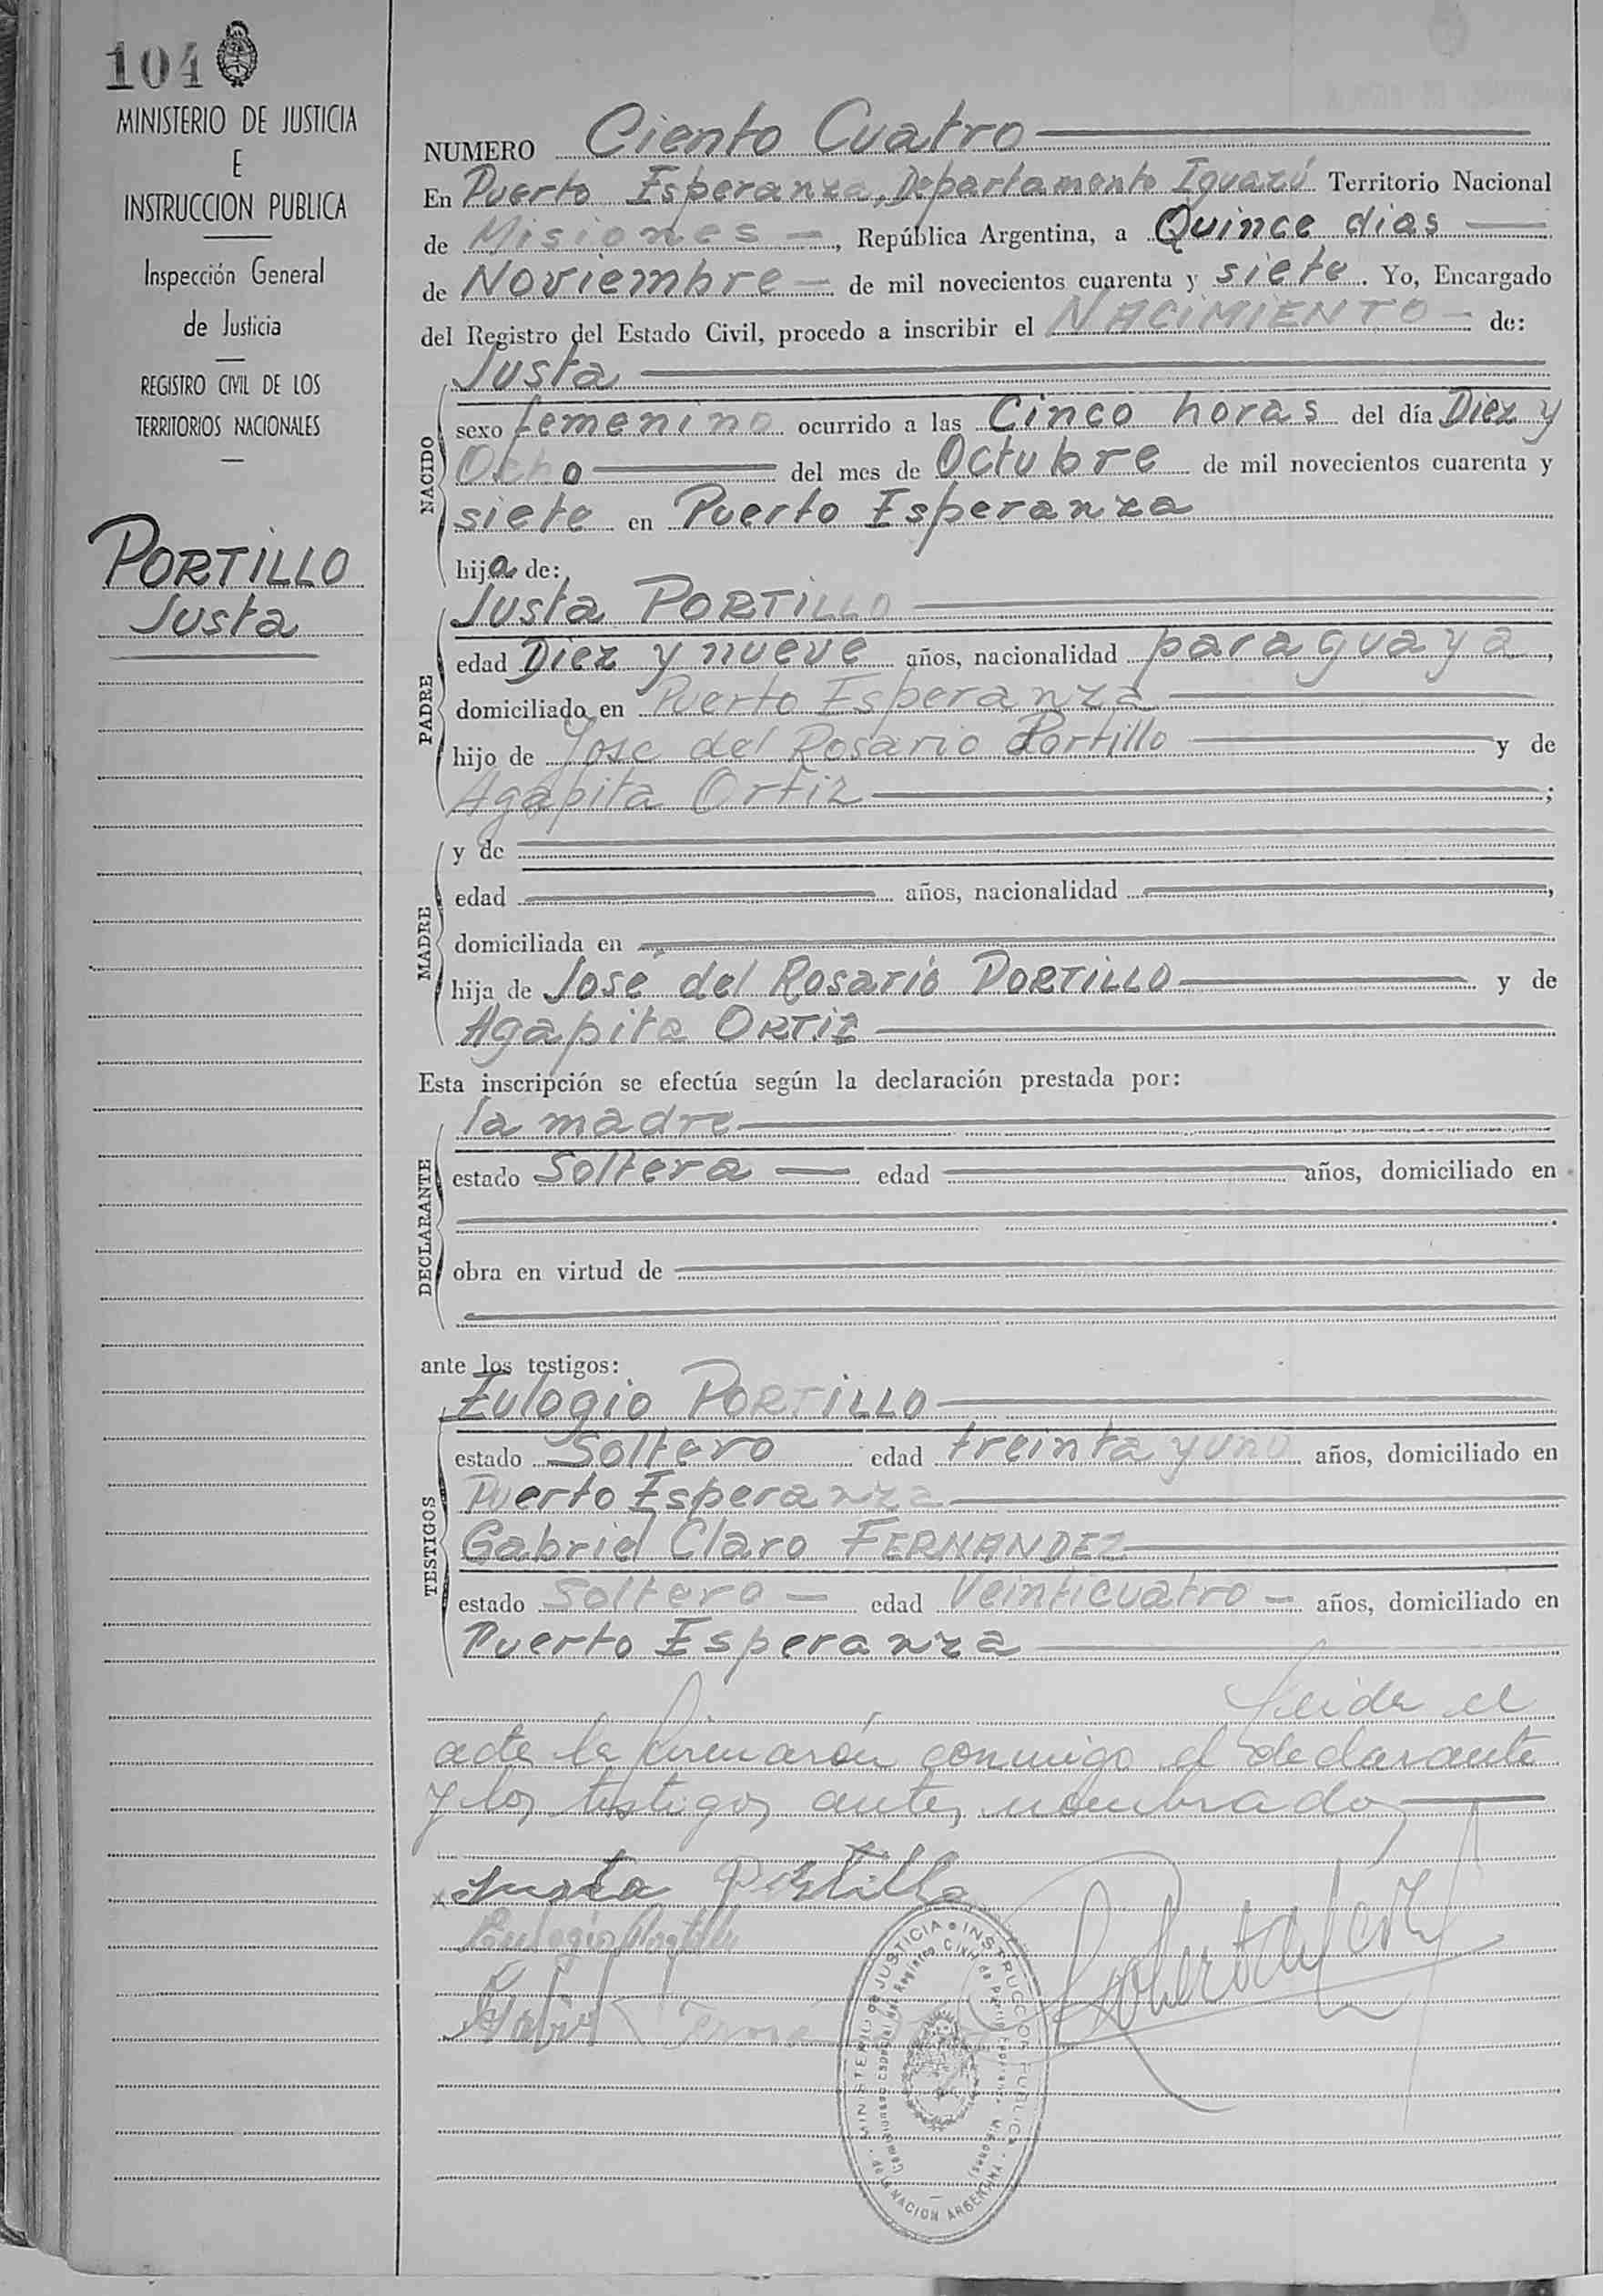 104
MINISTERIO DE JUSTICIA
E
INSTRUCCION PUBLICA
Inspección General
de Justicia
REGISTRO CIVIL DE LOS
TERRITORIOS NACIONALES
PORTILLO
Justa
NUMERO Ciento Cuatro
En Puerto Esperanza, Departamento Iguazú Territorio Nacional
de Misiones, República Argentina, a Quince dias
de Noviembre de mil novecientos cuarenta y siete. Yo, Encargado
del Registro del Estado Civil, procedo a inscribir el NACIMIENTO de:
NACIDO
Justa
sexo femenino ocurrido a las Cinco horas del día Diez y
Ocho del mes de Octubre de mil novecientos cuarenta y
siete en Puerto Esperanza
hija de:
PADRE
Justa PORTILLO
edad Diez y nueve años, nacionalidad paraguaya,
domiciliado en Puerto Esperanza
hijo de Jose del Rosario Portillo y de
Agapita Ortiz;
MADRE
y de
edad años, nacionalidad,
domiciliada en
hija de José del Rosario PORTILLO y de
Agapita ORTIZ
Esta inscripción se efectúa según la declaración prestada por:
DECLARANTE
la madre
estado Soltera edad años, domiciliado en
.
obra en virtud de
ante los testigos:
TESTIGOS
Eulogio PORTILLO
estado Soltero edad treinta y uno años, domiciliado en
Puerto Esperanza
Gabriel Claro FERNANDEZ
estado Soltero edad Veinticuatro años, domiciliado en
Puerto Esperanza
Leida el
acta la firmaron conmigo el declarante
y los testigos antes nombrados
Justa Portillo
Eulogio Portillo
MINISTERIO de JUSTICIA e INSTRUCCION PUBLICA
NACION ARGENTINA